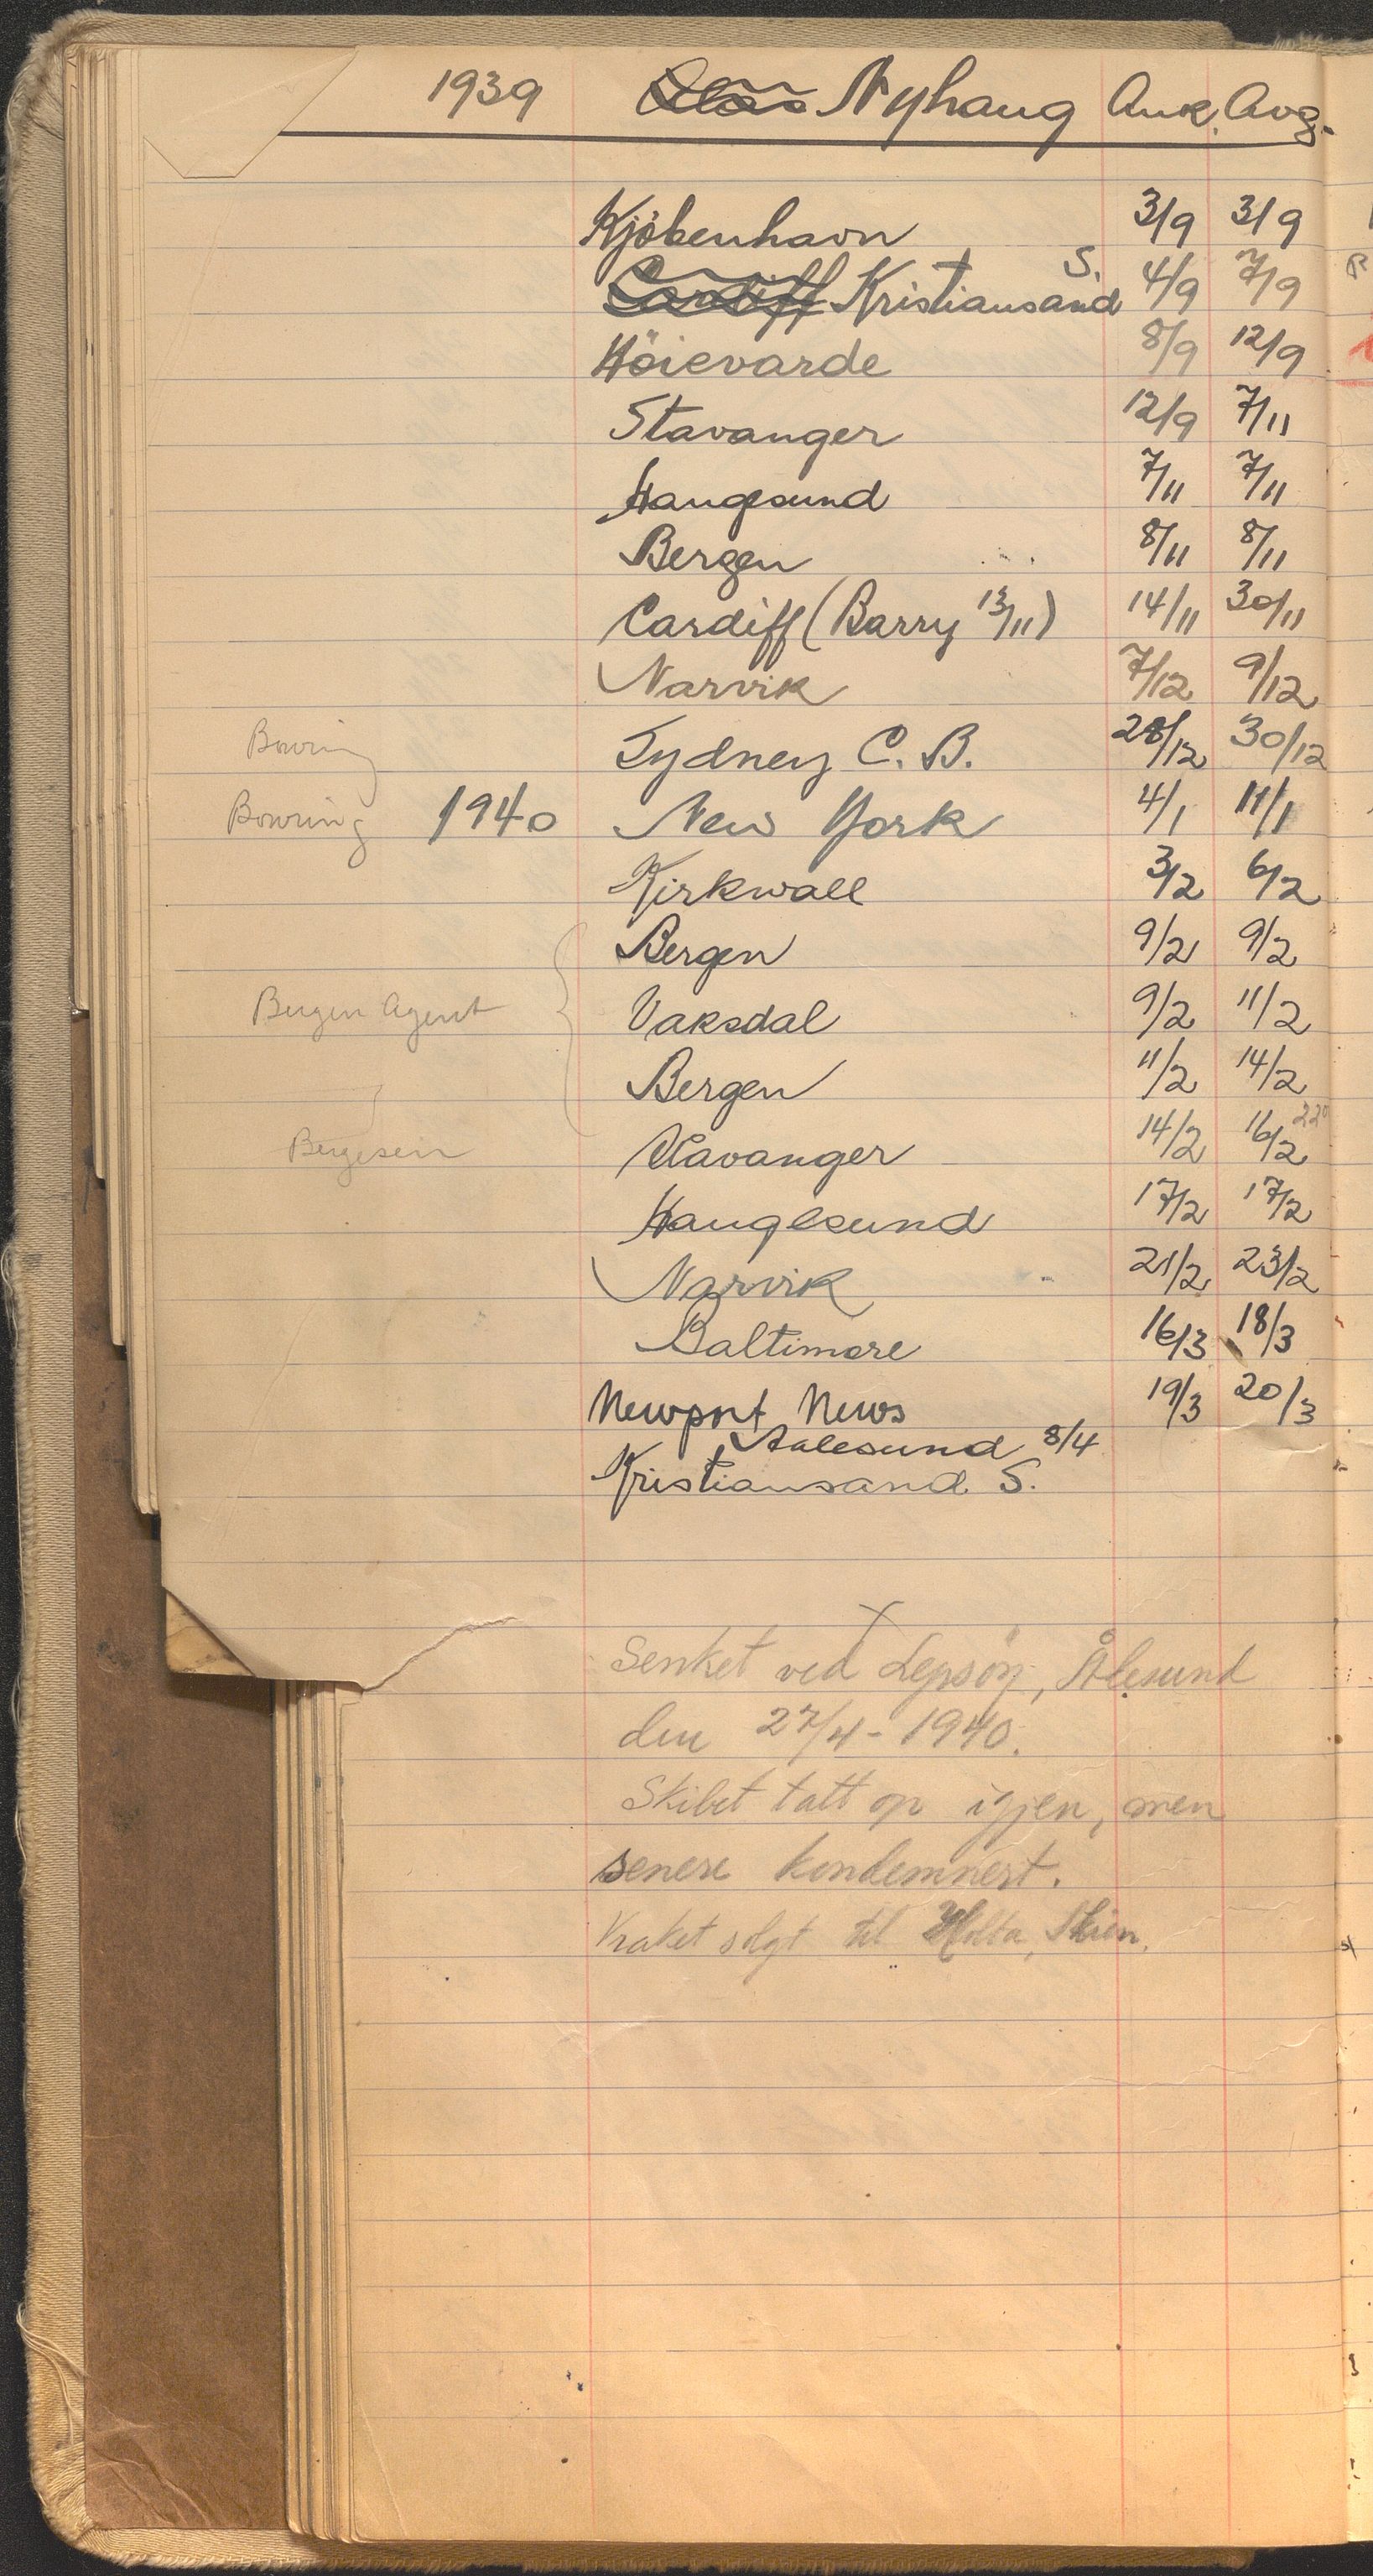 1939 Nyhaug Ank. Avg.
Kjöbenhavn 3/9 3/9
Cardiff Kristiansand S. 4/9 7/9
Höievarde 8/9 12/9
Stavanger 12/9 7/11
Haugesund 7/11 7/11
Bergen 8/11 8/11
Cardiff (Barry 13/11) 14/11 30/11
Narvik 7/12 9/12
Bowring Sydney C. B. 28/12 30/12
Bowring 1940 New York 4/1 11/1
Kirkwall 3/2 6/2
Bergen 9/2 9/2
Bergen Agent Vaksdal 9/2 11/2
Bergen 11/2 14/2
Bergesen Stavanger 14/2 16/2 220
Haugesund 17/2 17/2
Narvik 21/2 23/2
Baltimore 16/3 18/3
Newport News 19/3 20/3
Aalesund 8/4
Kristiansand S.
Senket ved Lepsöy, Ålesund
den 27/4 - 1940.
Skibet tatt op igjen, men
senere kondemnert.
Vraket solgt til Holta, Skien.